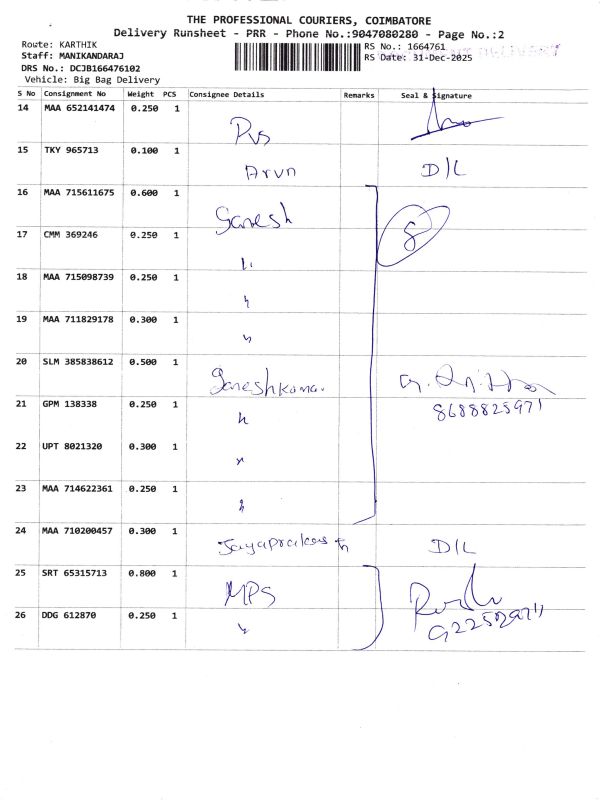 THE PROFESSIONAL COURIERS, COIMBATORE
Delivery Runsheet - PRR - Phone No.:9047080280 - Page No.:2
Route: KARTHIK
Staff: MANIKANDARAJ
DRS No.: DCJB166476102
Vehicle: Big Bag Delivery
RS No.: 1664761
RS Date: 31-Dec-2025
S No Consignment No Weight PCS Consignee Details Remarks Seal & Signature
14 MAA 652141474 0.250 1 Pvs
15 TKY 965713 0.100 1 Arun D/L
16 MAA 715611675 0.600 1 Ganesh 8
17 CMM 369246 0.250 1 "
18 MAA 715098739 0.250 1 "
19 MAA 711829178 0.300 1 "
20 SLM 385838612 0.500 1 Ganeshkumar.
8688825971
21 GPM 138338 0.250 1 "
22 UPT 8021320 0.300 1 "
23 MAA 714622361 0.250 1 "
24 MAA 710200457 0.300 1 Jayaprakash D/L
25 SRT 65315713 0.800 1 MPS
26 DDG 612870 0.250 1 "